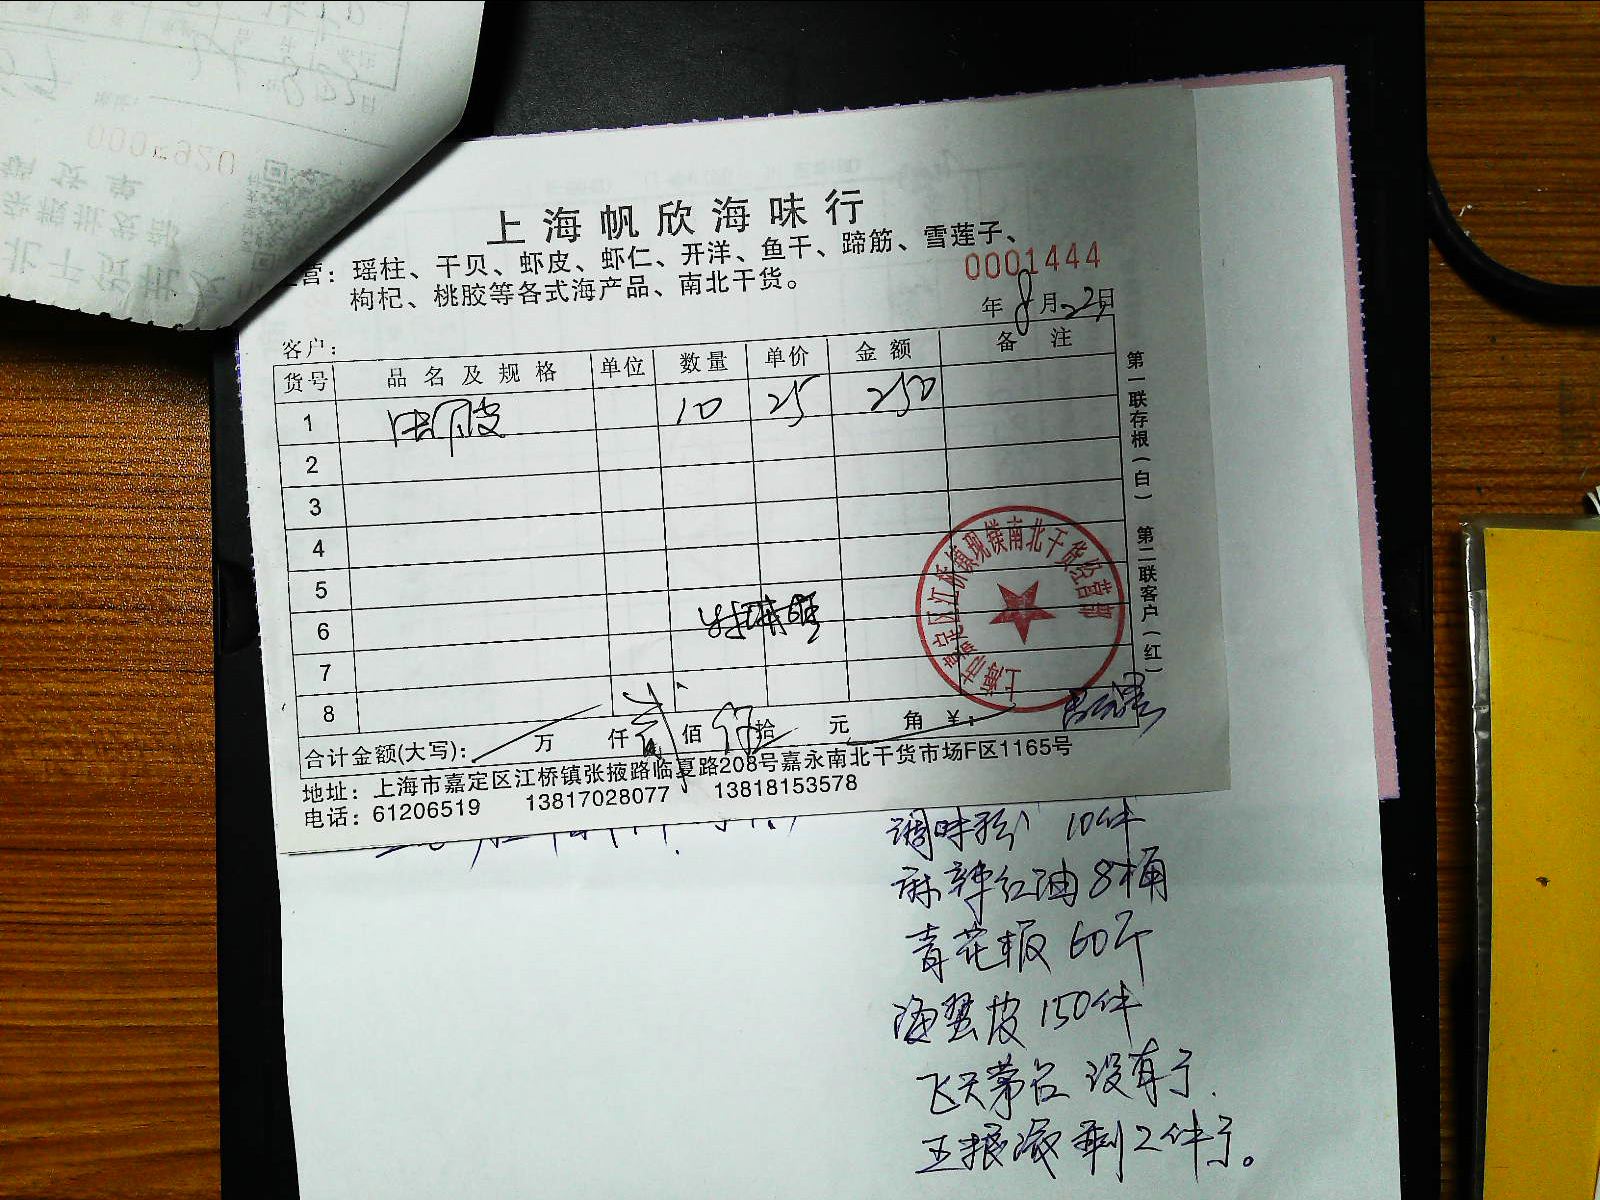 0005920
上海帆欣海味行
营：瑶柱、干贝、虾皮、虾仁、开洋、鱼干、蹄筋、雪莲子、
枸杞、桃胶等各式海产品、南北干货。
0001444
年8月22日
客户：
货号 品名及规格 单位 数量 单价 金额 备注
1 10 25 250
2
3
4
5
6
7
8
合计金额(大写)： 万 仟 贰 佰 伍 拾 元 角 ￥：
地址：上海市嘉定区江桥镇张掖路临夏路208号嘉永南北干货市场F区1165号
电话：61206519 13817028077 13818153578
第一联存根(白) 第二联客户(红)
上海市嘉定区江桥镇现镁南北干货经营部
调味粉 10件
麻辣红油 8桶
青花椒 60斤
海蜇皮 150件
飞天茅台 没有了.
五粮液 剩2件了。